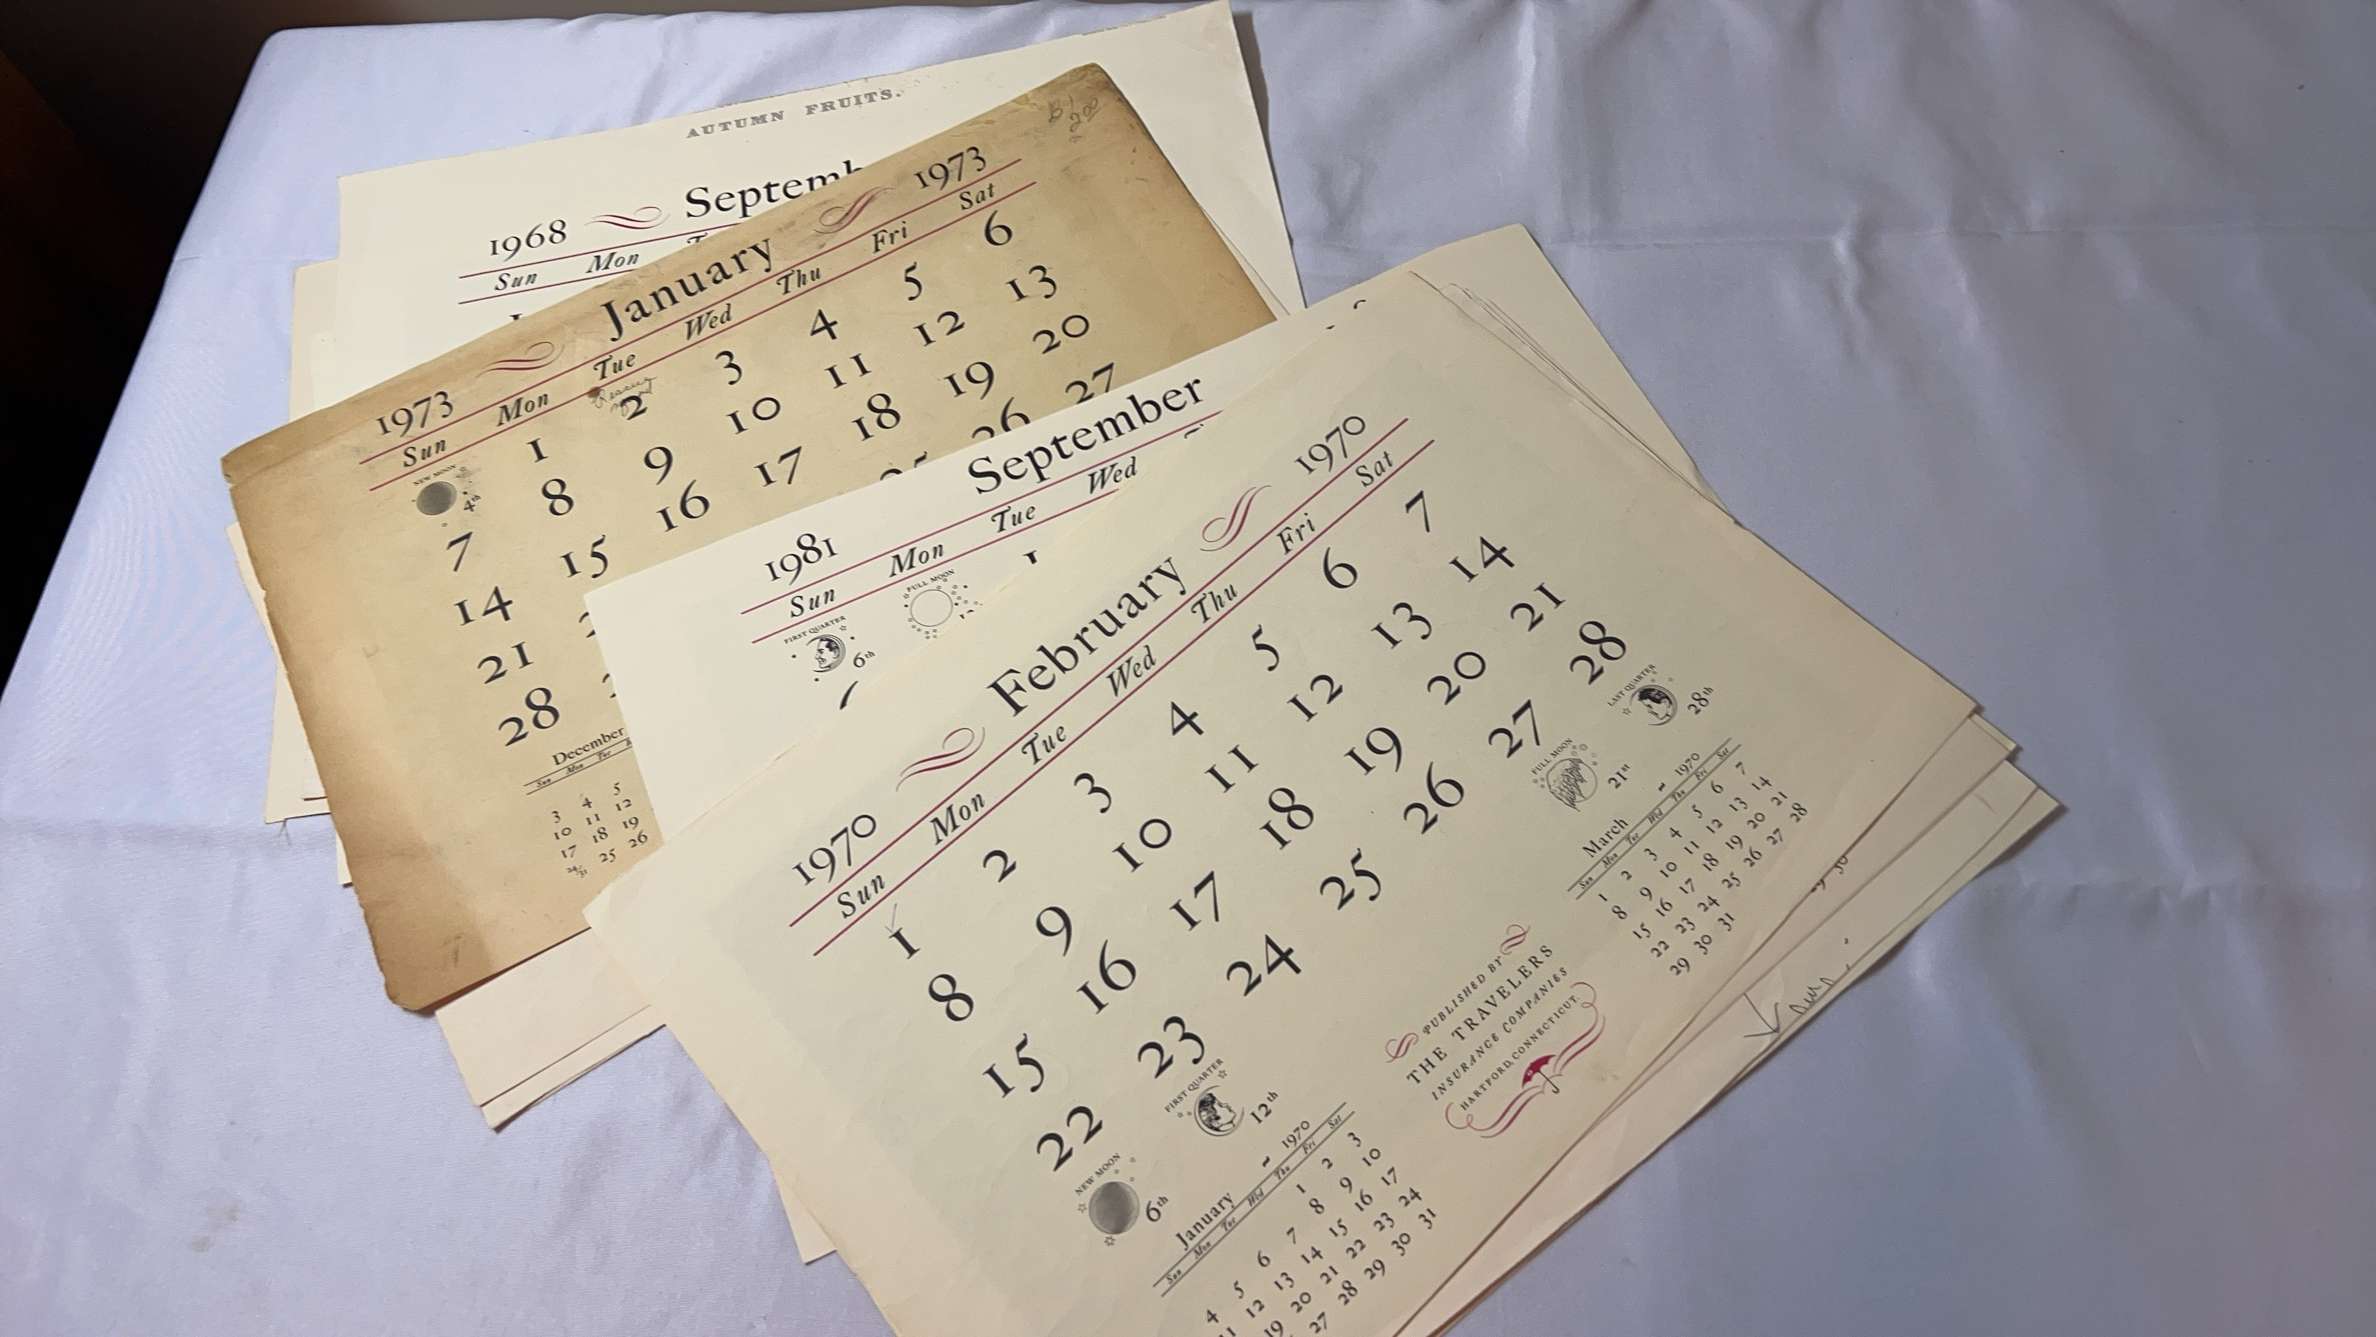 AUTUMN FRUITS.
1968 Septemb
Sun Mon T
1973 January 1973
Sun Mon Tue Wed Thu Fri Sat
NEW MOON 4th 1 2 3 4 5 6
7 8 9 10 11 12 13
14 15 16 17 18 19 20
21 25 26 27
28
December
Sun Mon Tue
3 4 5
10 11 12
17 18 19
24/31 25 26
1981 September
Sun Mon Tue Wed
FIRST QUARTER 6th FULL MOON 1
1970 February 1970
Sun Mon Tue Wed Thu Fri Sat
1 2 3 4 5 6 7
8 9 10 11 12 13 14
15 16 17 18 19 20 21
22 23 24 25 26 27 28
NEW MOON 6th FIRST QUARTER 12th FULL MOON 21st LAST QUARTER 28th
January - 1970
Sun Mon Tue Wed Thu Fri Sat
1 2 3
4 5 6 7 8 9 10
11 12 13 14 15 16 17
19 20 21 22 23 24
27 28 29 30 31
PUBLISHED BY
THE TRAVELERS
INSURANCE COMPANIES
HARTFORD, CONNECTICUT.
March - 1970
Sun Mon Tue Wed Thu Fri Sat
1 2 3 4 5 6 7
8 9 10 11 12 13 14
15 16 17 18 19 20 21
22 23 24 25 26 27 28
29 30 31
29 30